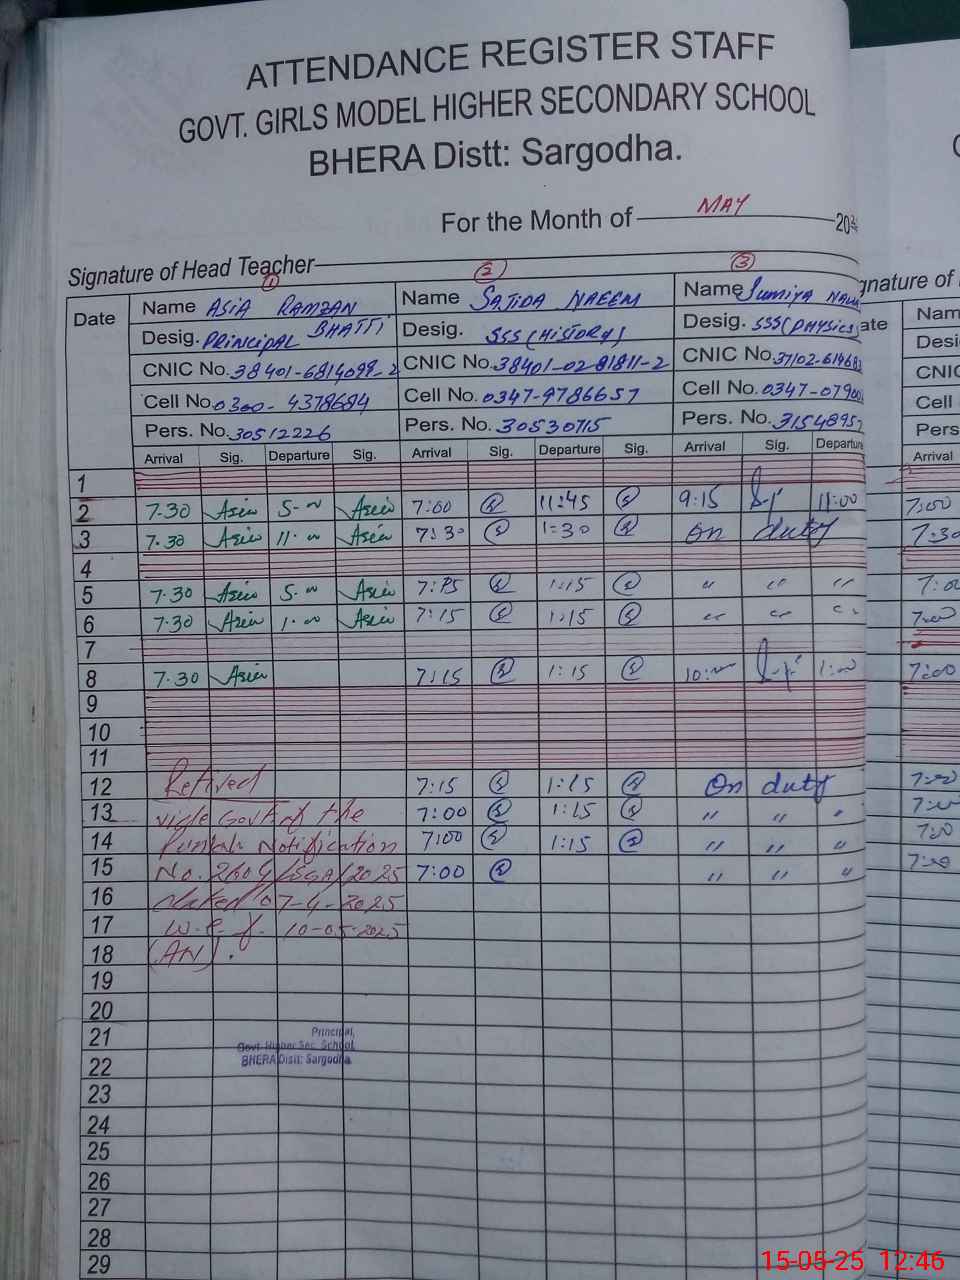 ATTENDANCE REGISTER STAFF
GOVT. GIRLS MODEL HIGHER SECONDARY SCHOOL
BHERA Distt: Sargodha.
For the Month of MAY 20
Signature of Head Teacher
gnature of
1 2 3
Date Name ASIA RAMZAN Name SAJIDA NAEEM Name Sumiya
BHATTI
Desig. PRINCIPAL Desig. SSS (HISTORY) Desig. SSS (PHYSICS) ate
CNIC No. 38401-6814098-2 CNIC No. 38401-02-81811-2 CNIC No. 37102-61468
Cell No. 0300-4378684 Cell No. 0347-9786657 Cell No. 0347-0790
Pers. No. 30512226 Pers. No. 30530715 Pers. No. 3154895
Arrival Sig. Departure Sig. Arrival Sig. Departure Sig. Arrival Sig. Departure Arrival
1
2 7.30 Asia 5.00 Asia 7:00 11:45 9:15 11:00 7:00
3 7.30 Asia 11.00 Asia 7:30 1:30 On duty 7:30
4
5 7.30 Asia 5.00 Asia 7:15 1:15 " " " 7:00
6 7.30 Asia 1.00 Asia 7:15 1:15 " " " 7:00
7
8 7.30 Asia 7:15 1:15 10:00 1:00 7:00
9
10
11
12 Retired 7:15 1:15 On duty 7:00
13 vide Govt of the 7:00 1:15 " " " 7:00
14 Punjab Notification 7:00 1:15 " " " 7:00
15 No. 2604/SGA/2025 7:00 " " " 7:00
16 dated 07-4-2025
17 w.e.f. 10-05-2025
18 (AN).
19
20
21
Principal,
Govt. Higher Sec. School,
BHERA Distt: Sargodha.
22
23
24
25
26
27
28
29
15-05-25 12:46